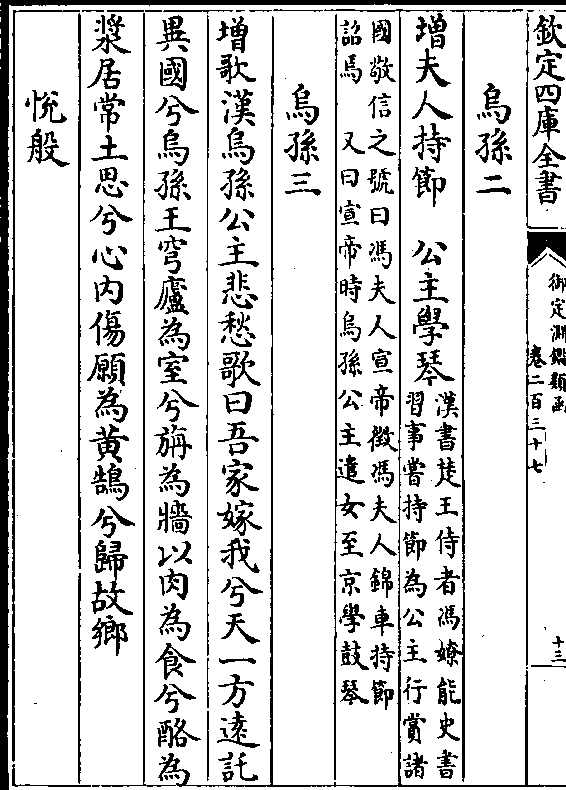 欽定四庫全書
御定淵鑑類函
卷二百三十七
十三
烏孫二
增夫人持節　公主學琴
漢書楚王侍者馮嫽能史書
習事嘗持節為公主行賞諸
國敬信之號曰馮夫人宣帝徵馮夫人錦車持節
詔焉　又曰宣帝時烏孫公主遣女至京學鼓琴
烏孫三
增歌漢烏孫公主悲愁歌曰吾家嫁我兮天一方遠託
異國兮烏孫王穹廬為室兮旃為牆以肉為食兮酪為
漿居常土思兮心內傷願為黃鵠兮歸故鄉
悅般